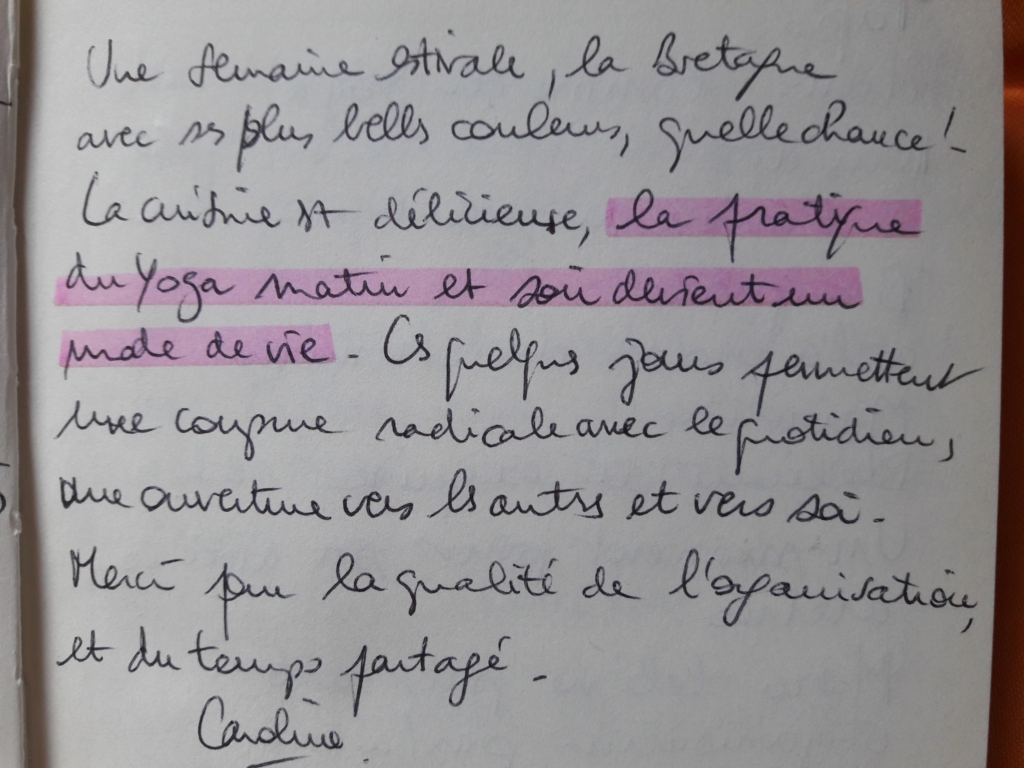 Une semaine estivale, la Bretagne
avec ses plus belles couleurs, quelle chance !
La cuisine est délicieuse, la pratique
du Yoga matin et soir devient un
mode de vie. Ces quelques jours permettent
une coupure radicale avec le quotidien,
une ouverture vers les autres et vers soi.
Merci pour la qualité de l'organisation,
et du temps partagé.
Caroline